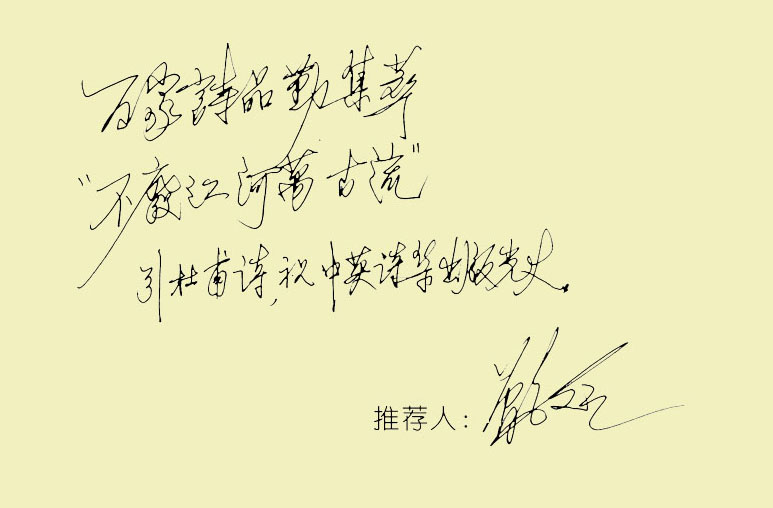 百家詩品勤集萃
“不廢江河萬古流”
引杜甫诗,祝中英诗苹出版
推荐人: